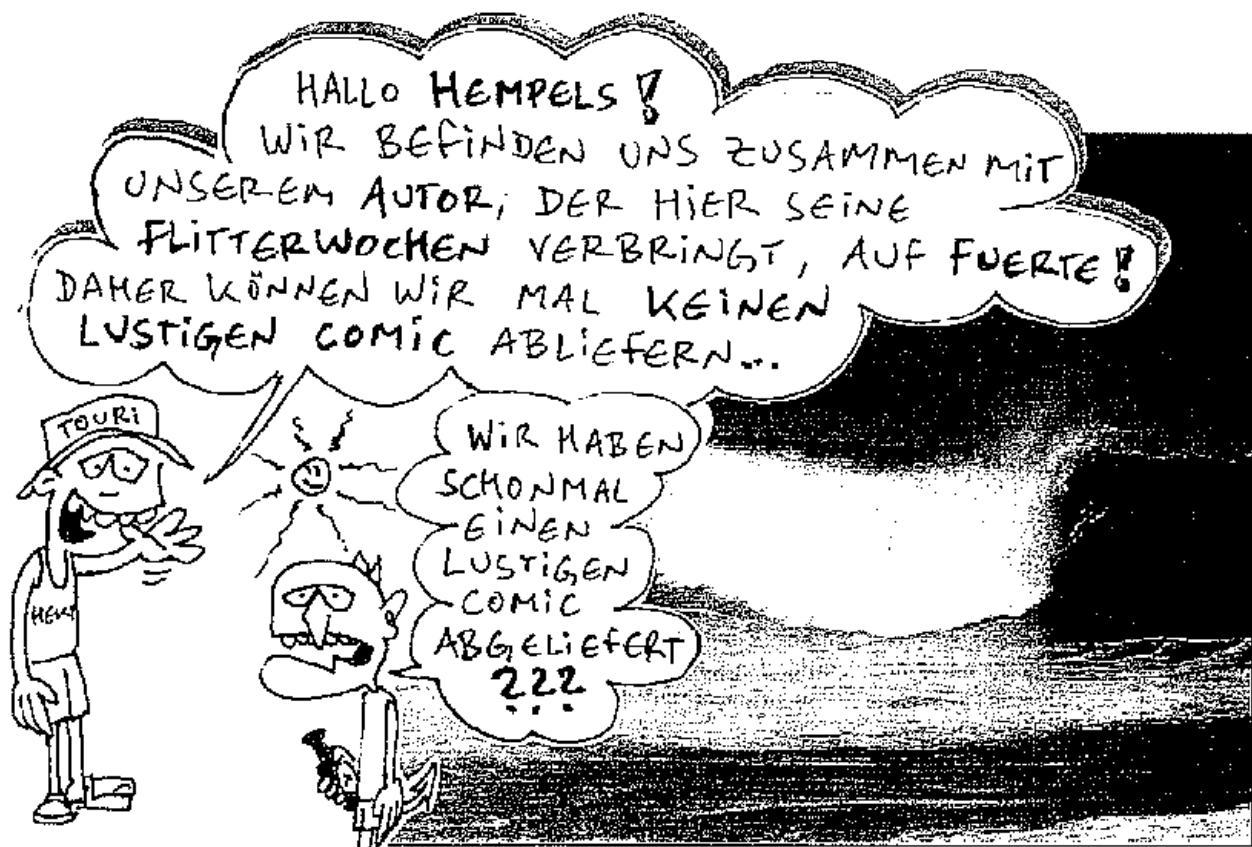 HALLO HEMPELS!
WIR BEFINDEN UNS ZUSAMMEN MIT
UNSEREM AUTOR, DER HIER SEINE
FLITTERWOCHEN VERBRINGT, AUF FUERTE!
DAHER KÖNNEN WIR MAL KEINEN
LUSTIGEN COMIC ABLIEFERN...
TOURI
WIR HABEN
SCHONMAL
EINEN
LUSTIGEN
COMIC
ABGELIEFERT
???